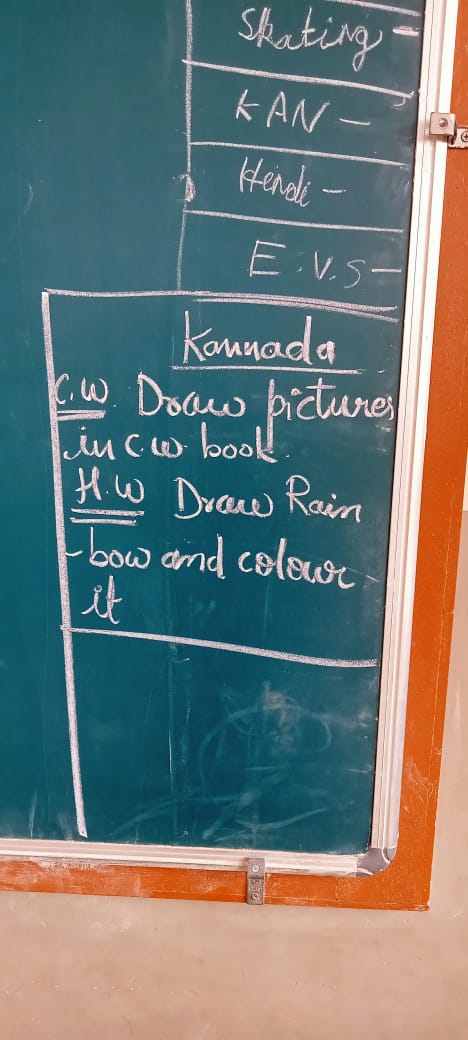 Skating -
KAN -
Hindi -
E.V.S -
Kannada
C.W. Draw pictures
in c w book.
H.W Draw Rain
-bow and colour
it